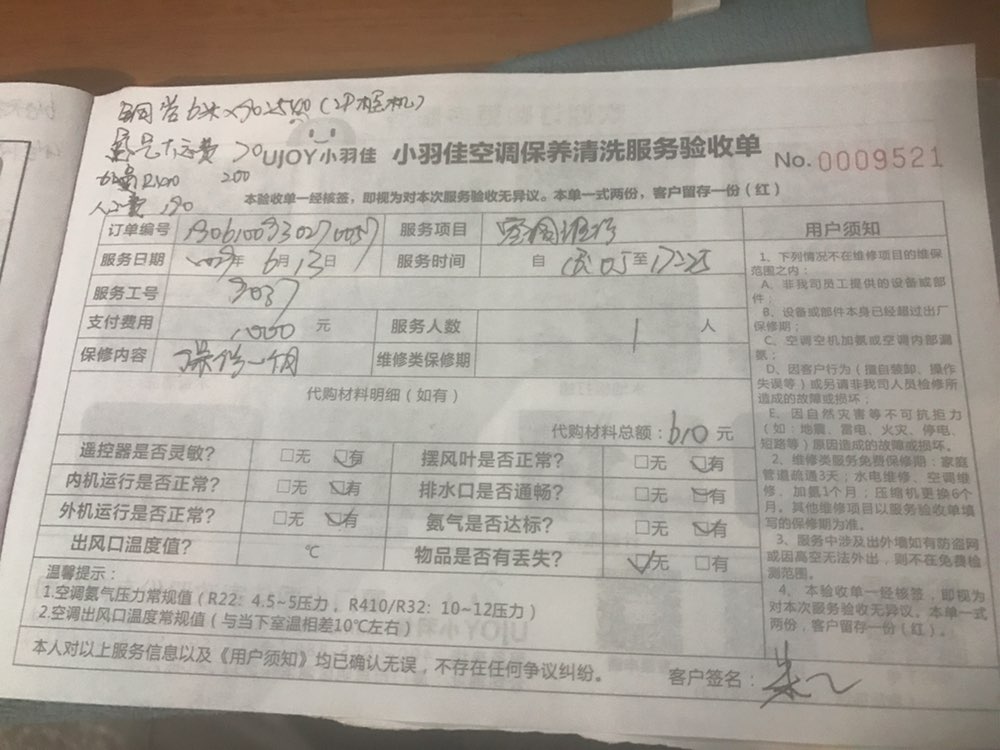 铜管6米×90=540（2P柜机）
运费 70
加氟R410 200
人工费 190
UJOY小羽佳 小羽佳空调保养清洗服务验收单 No. 0009521
本验收单一经核签，即视为对本次服务验收无异议。本单一式两份，客户留存一份（红）
订单编号 服务项目 空调维修
服务日期 年 6月13日 服务时间 自 至
服务工号 3037
支付费用 1000 元 服务人数 1 人
保修内容 保修一个月 维修类保修期
代购材料明细（如有）
代购材料总额：610元
遥控器是否灵敏？ □无 □有 摆风叶是否正常？ □无 □有
内机运行是否正常？ □无 □有 排水口是否通畅？ □无 □有
外机运行是否正常？ □无 □有 氨气是否达标？ □无 □有
出风口温度值？ ℃ 物品是否有丢失？ □无 □有
温馨提示：
1.空调氨气压力常规值（R22：4.5~5压力，R410/R32：10~12压力）
2.空调出风口温度常规值（与当下室温相差10℃左右）
本人对以上服务信息以及《用户须知》均已确认无误，不存在任何争议纠纷。
客户签名：
用户须知
1、下列情况不在维修项目的维保
范围之内：
A、非我司员工提供的设备或部
件；
B、设备或部件本身已经超过出厂
保修期；
C、空调空机加氨或空调内部漏
氨；
D、因客户行为（擅自装卸、操作
失误等）或另请非我司人员检修所
造成的故障或损坏；
E、因自然灾害等不可抗拒力
（如：地震、雷电、火灾、停电、
短路等）原因造成的故障或损坏。
2、维修类服务免费保修期：家庭
管道疏通3天；水电维修、空调维
修、加氨1个月；压缩机更换6个
月。其他维修项目以服务验收单填
写的保修期为准。
3、服务中涉及出外墙如有防盗网
或因高空无法外出，则不在免费检
测范围。
4、本验收单一经核签，即视为
对本次服务验收无异议。本单一式
两份，客户留存一份（红）。